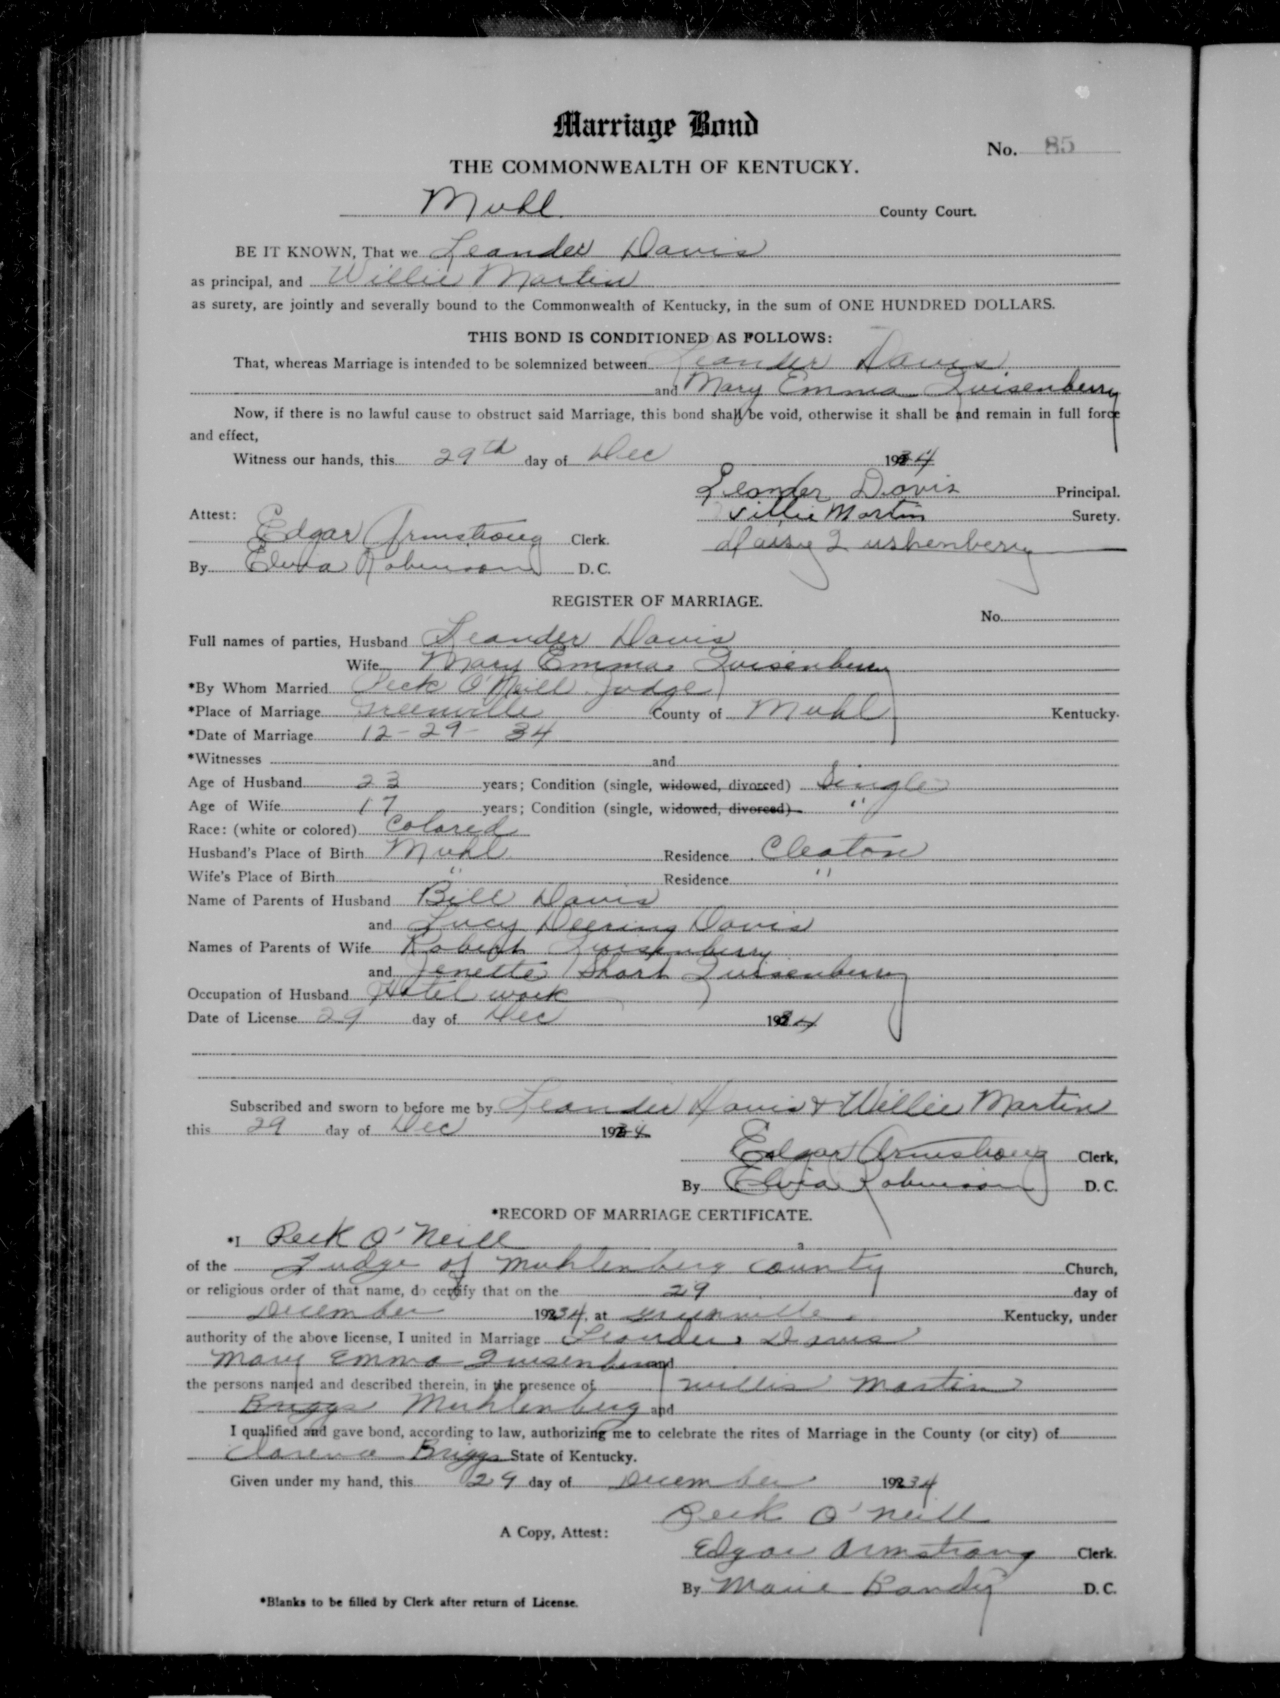 Marriage Bond
No. 85
THE COMMONWEALTH OF KENTUCKY.
Muhl County Court.
BE IT KNOWN, That we Leander Davis
as principal, and Willie Martin
as surety, are jointly and severally bound to the Commonwealth of Kentucky, in the sum of ONE HUNDRED DOLLARS.
THIS BOND IS CONDITIONED AS FOLLOWS:
That, whereas Marriage is intended to be solemnized between Leander Davis
and Mary Emma Quisenberry
Now, if there is no lawful cause to obstruct said Marriage, this bond shall be void, otherwise it shall be and remain in full force
and effect,
Witness our hands, this 29th day of Dec 1934
Leander Davis Principal.
Attest: Willie Martin Surety.
Edgar Armstrong Clerk.
Daisy Qushenberry
By Elvia Robinson D. C.
REGISTER OF MARRIAGE.
No.
Full names of parties, Husband Leander Davis
Wife Mary Emma Quisenberry
*By Whom Married Peck O'Neill Judge
*Place of Marriage Greenville County of Muhl Kentucky.
*Date of Marriage 12-29-34
*Witnesses and
Age of Husband 23 years; Condition (single, widowed, divorced) Single
Age of Wife 17 years; Condition (single, widowed, divorced) "
Race: (white or colored) Colored
Husband's Place of Birth Muhl Residence Cleaton
Wife's Place of Birth " Residence "
Name of Parents of Husband Bill Davis
and Lucy Deering Davis
Names of Parents of Wife Robert Quisenberry
and Jenette Short Quisenberry
Occupation of Husband Hotel work
Date of License 29 day of Dec 1934
Subscribed and sworn to before me by Leander Davis & Willie Martin
this 29 day of Dec 1934
Edgar Armstrong Clerk,
By Elvia Robinson D. C.
*RECORD OF MARRIAGE CERTIFICATE.
*I Peck O'Neill a
of the Judge of Muhlenberg County Church,
or religious order of that name, do certify that on the 29 day of
December 1934, at Greenville Kentucky, under
authority of the above license, I united in Marriage Leander Davis
Mary Emma Quisenberry and
the persons named and described therein, in the presence of Willie Martin
Briggs Muhlenberg and
I qualified and gave bond, according to law, authorizing me to celebrate the rites of Marriage in the County (or city) of
Clarence Briggs State of Kentucky.
Given under my hand, this 29 day of December 1934
Peck O'Neill
A Copy, Attest:
Edgar Armstrong Clerk.
By Marie Bandy D. C.
*Blanks to be filled by Clerk after return of License.